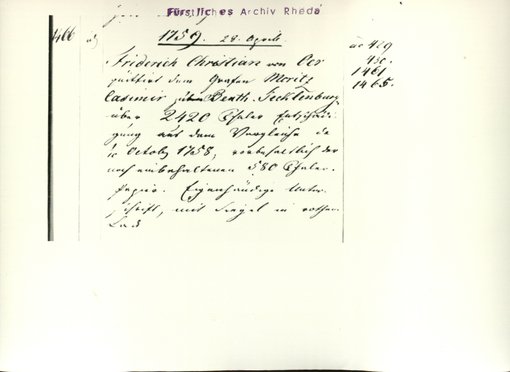 Fürstliches Archiv Rheda
466
1759. 28. April
Friderich Christian von Cer
quittirt dem Grafen Moritz
Casimir zu Benth. Tecklenburg
über 2420 Thaler Entschädi
gung aus dem Vergleiche de
October 1758, vorbehaltlich der
noch einbehaltenen 580 Thaler.
Papier. Eigenhändige Unter
schrift, mit Siegel in rothem
Lack
429
430.
1461
1465.